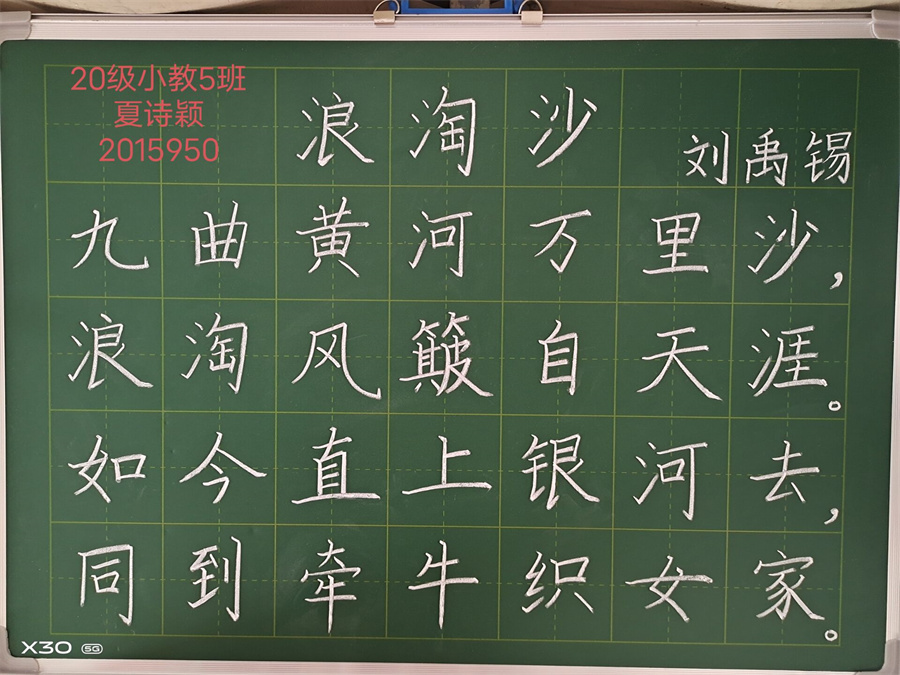 20级小教5班
夏诗颖
2015950
浪淘沙
刘禹锡
九曲黄河万里沙,
浪淘风簸自天涯。
如今直上银河去,
同到牵牛织女家。
X30 5G